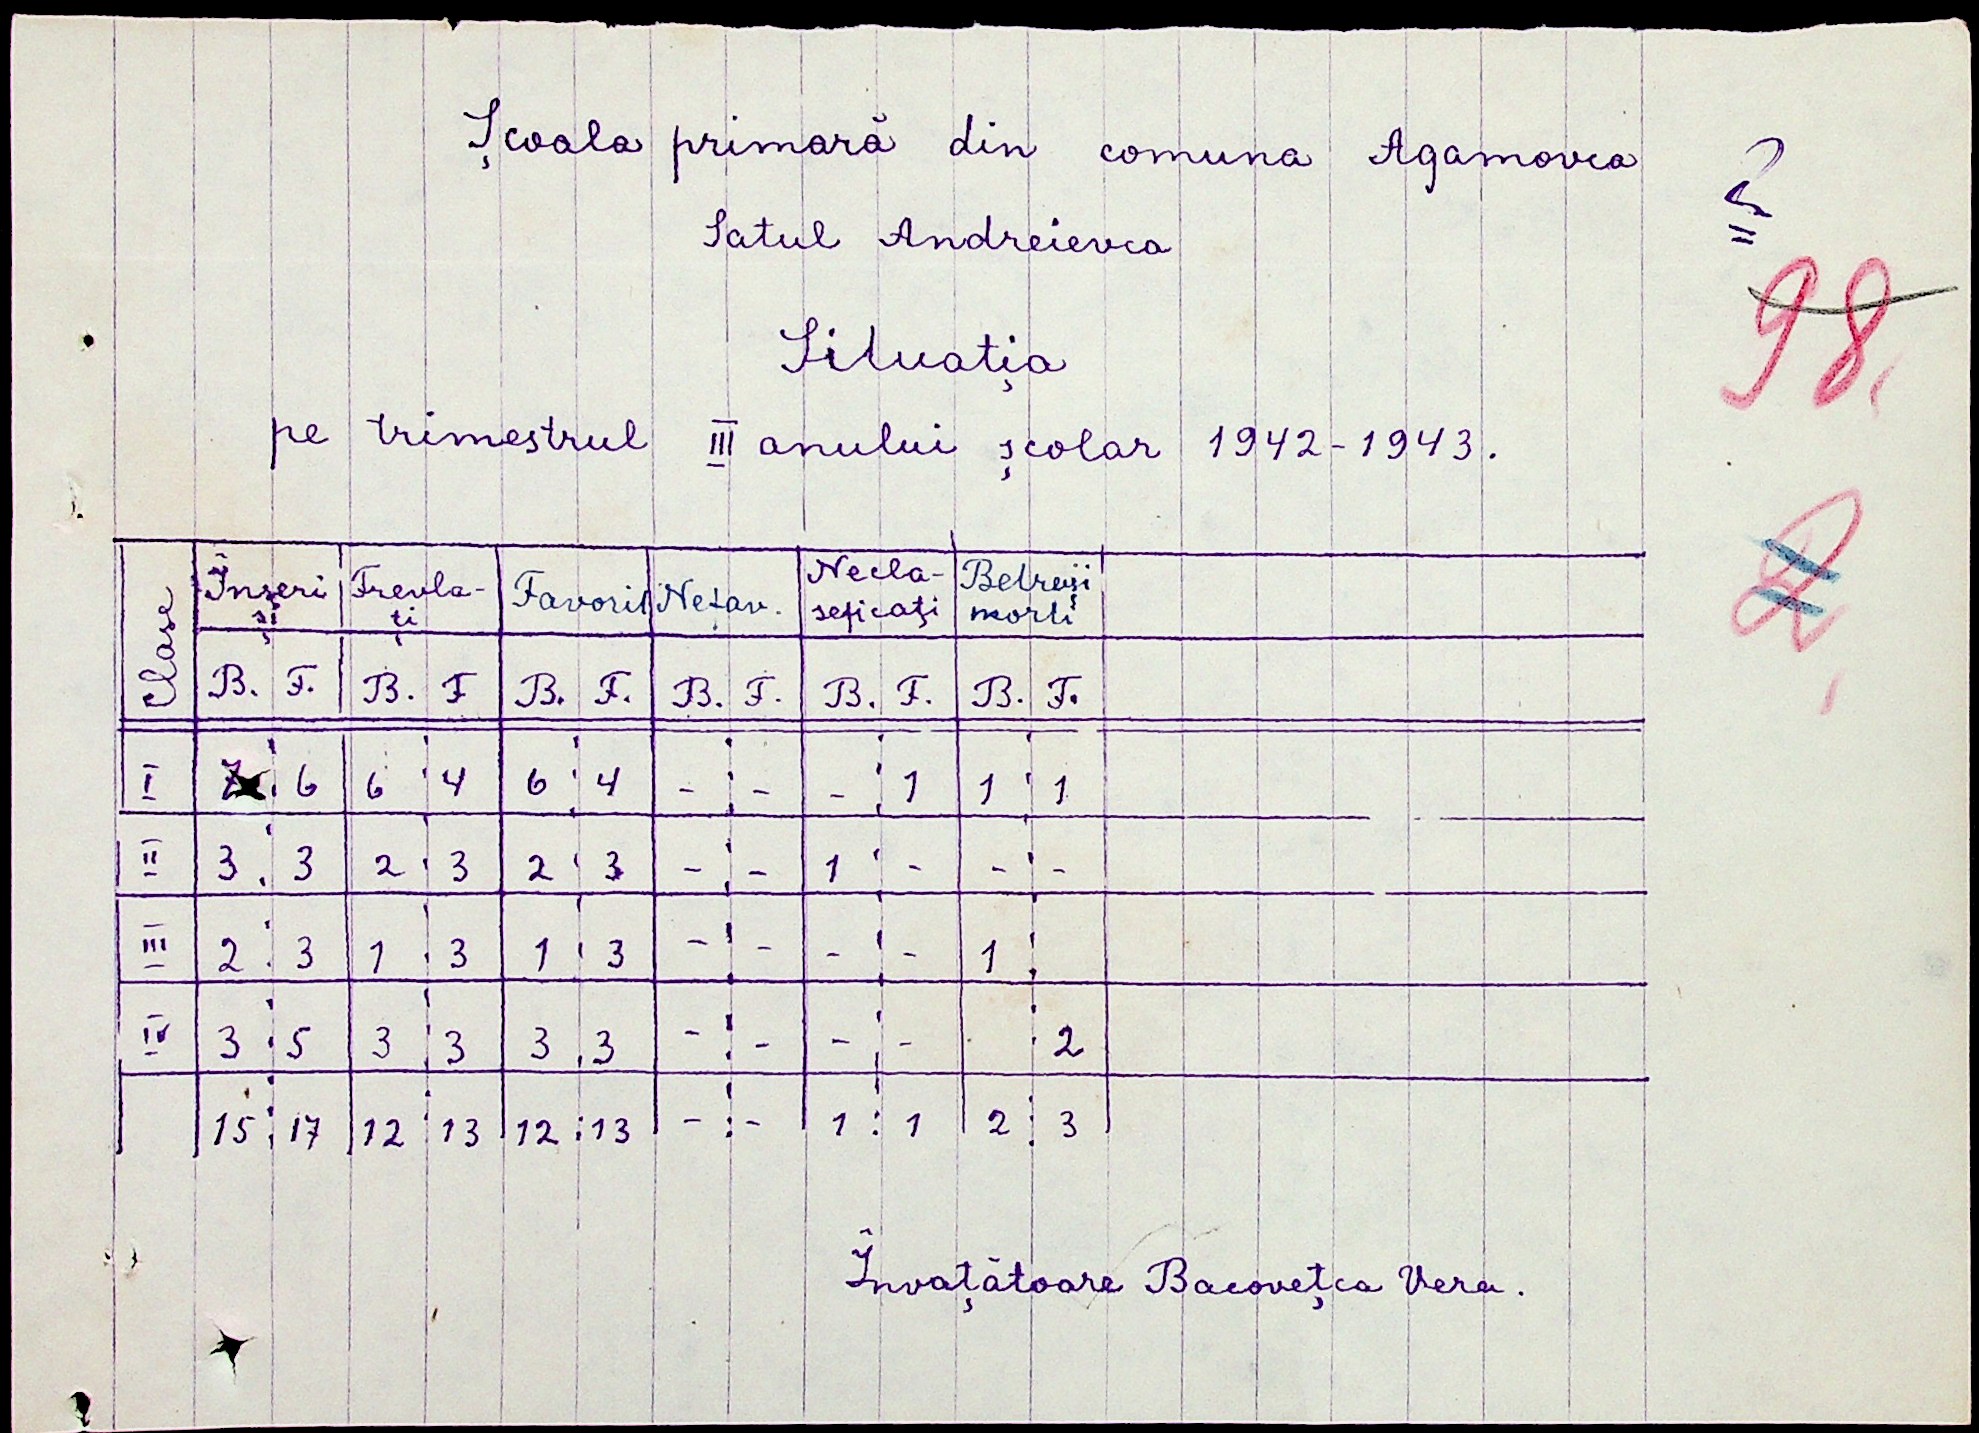 Școala primară din comuna Agamovca
Satul Andreievca
Situația
pe trimestrul III anului școlar 1942-1943.
98
Clase Înscriși Frevlați Favorit Nefav. Neclaseficați Betrași morți
B. F. B. F B. F. B. F. B. F. B. F.
I 7 6 6 4 6 4 - - - 1 1 1
II 3 3 2 3 2 3 - - 1 - - -
III 2 3 1 3 1 3 - - - - 1
IV 3 5 3 3 3 3 - - - - 2
15 17 12 13 12 13 - - 1 1 2 3
Învațătoare Bacovețca Vera.